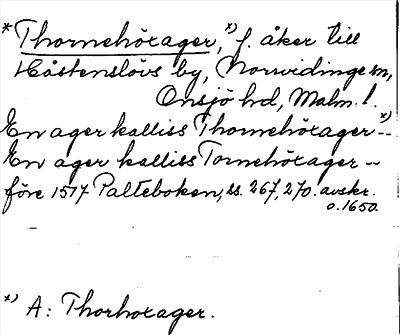 *Thornehörager, *) f. åker till
Håstenslövs by, Norrvidinge sn,
Onsjö hd, Malm. l.
En ager kalliss Thornehörager *) --
En ager kalliss Tornehörager --
före 1517 Palteboken, ss. 267, 270. avskr.
o. 1650.
*) A: Thorhorager.